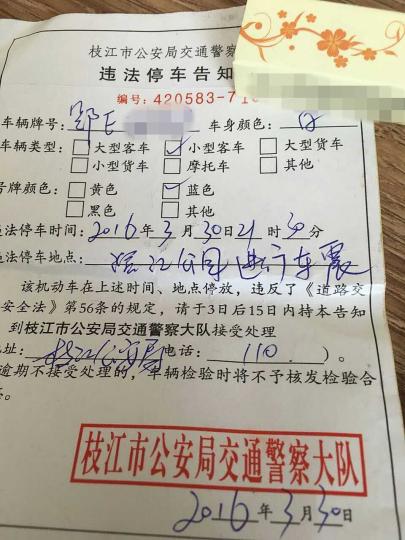 枝江市公安局交通警察
违法停车告知
编号：420583-71
车辆牌号：鄂E 车身颜色：白
车辆类型：□大型客车 ☑小型客车 □大型货车
□小型货车 □摩托车 □其他
号牌颜色：□黄色 ☑蓝色
□黑色 □其他
违法停车时间：2016年3月30日21时30分
违法停车地点：沿江公园进行车震
该机动车在上述时间、地点停放，违反了《道路交
安全法》第56条的规定，请于3日后15日内持本告知
到枝江市公安局交通警察大队接受处理
地址：枝江公安局 电话：110 ）。
逾期不接受处理的，车辆检验时将不予核发检验合
枝江市公安局交通警察大队
2016年3月30